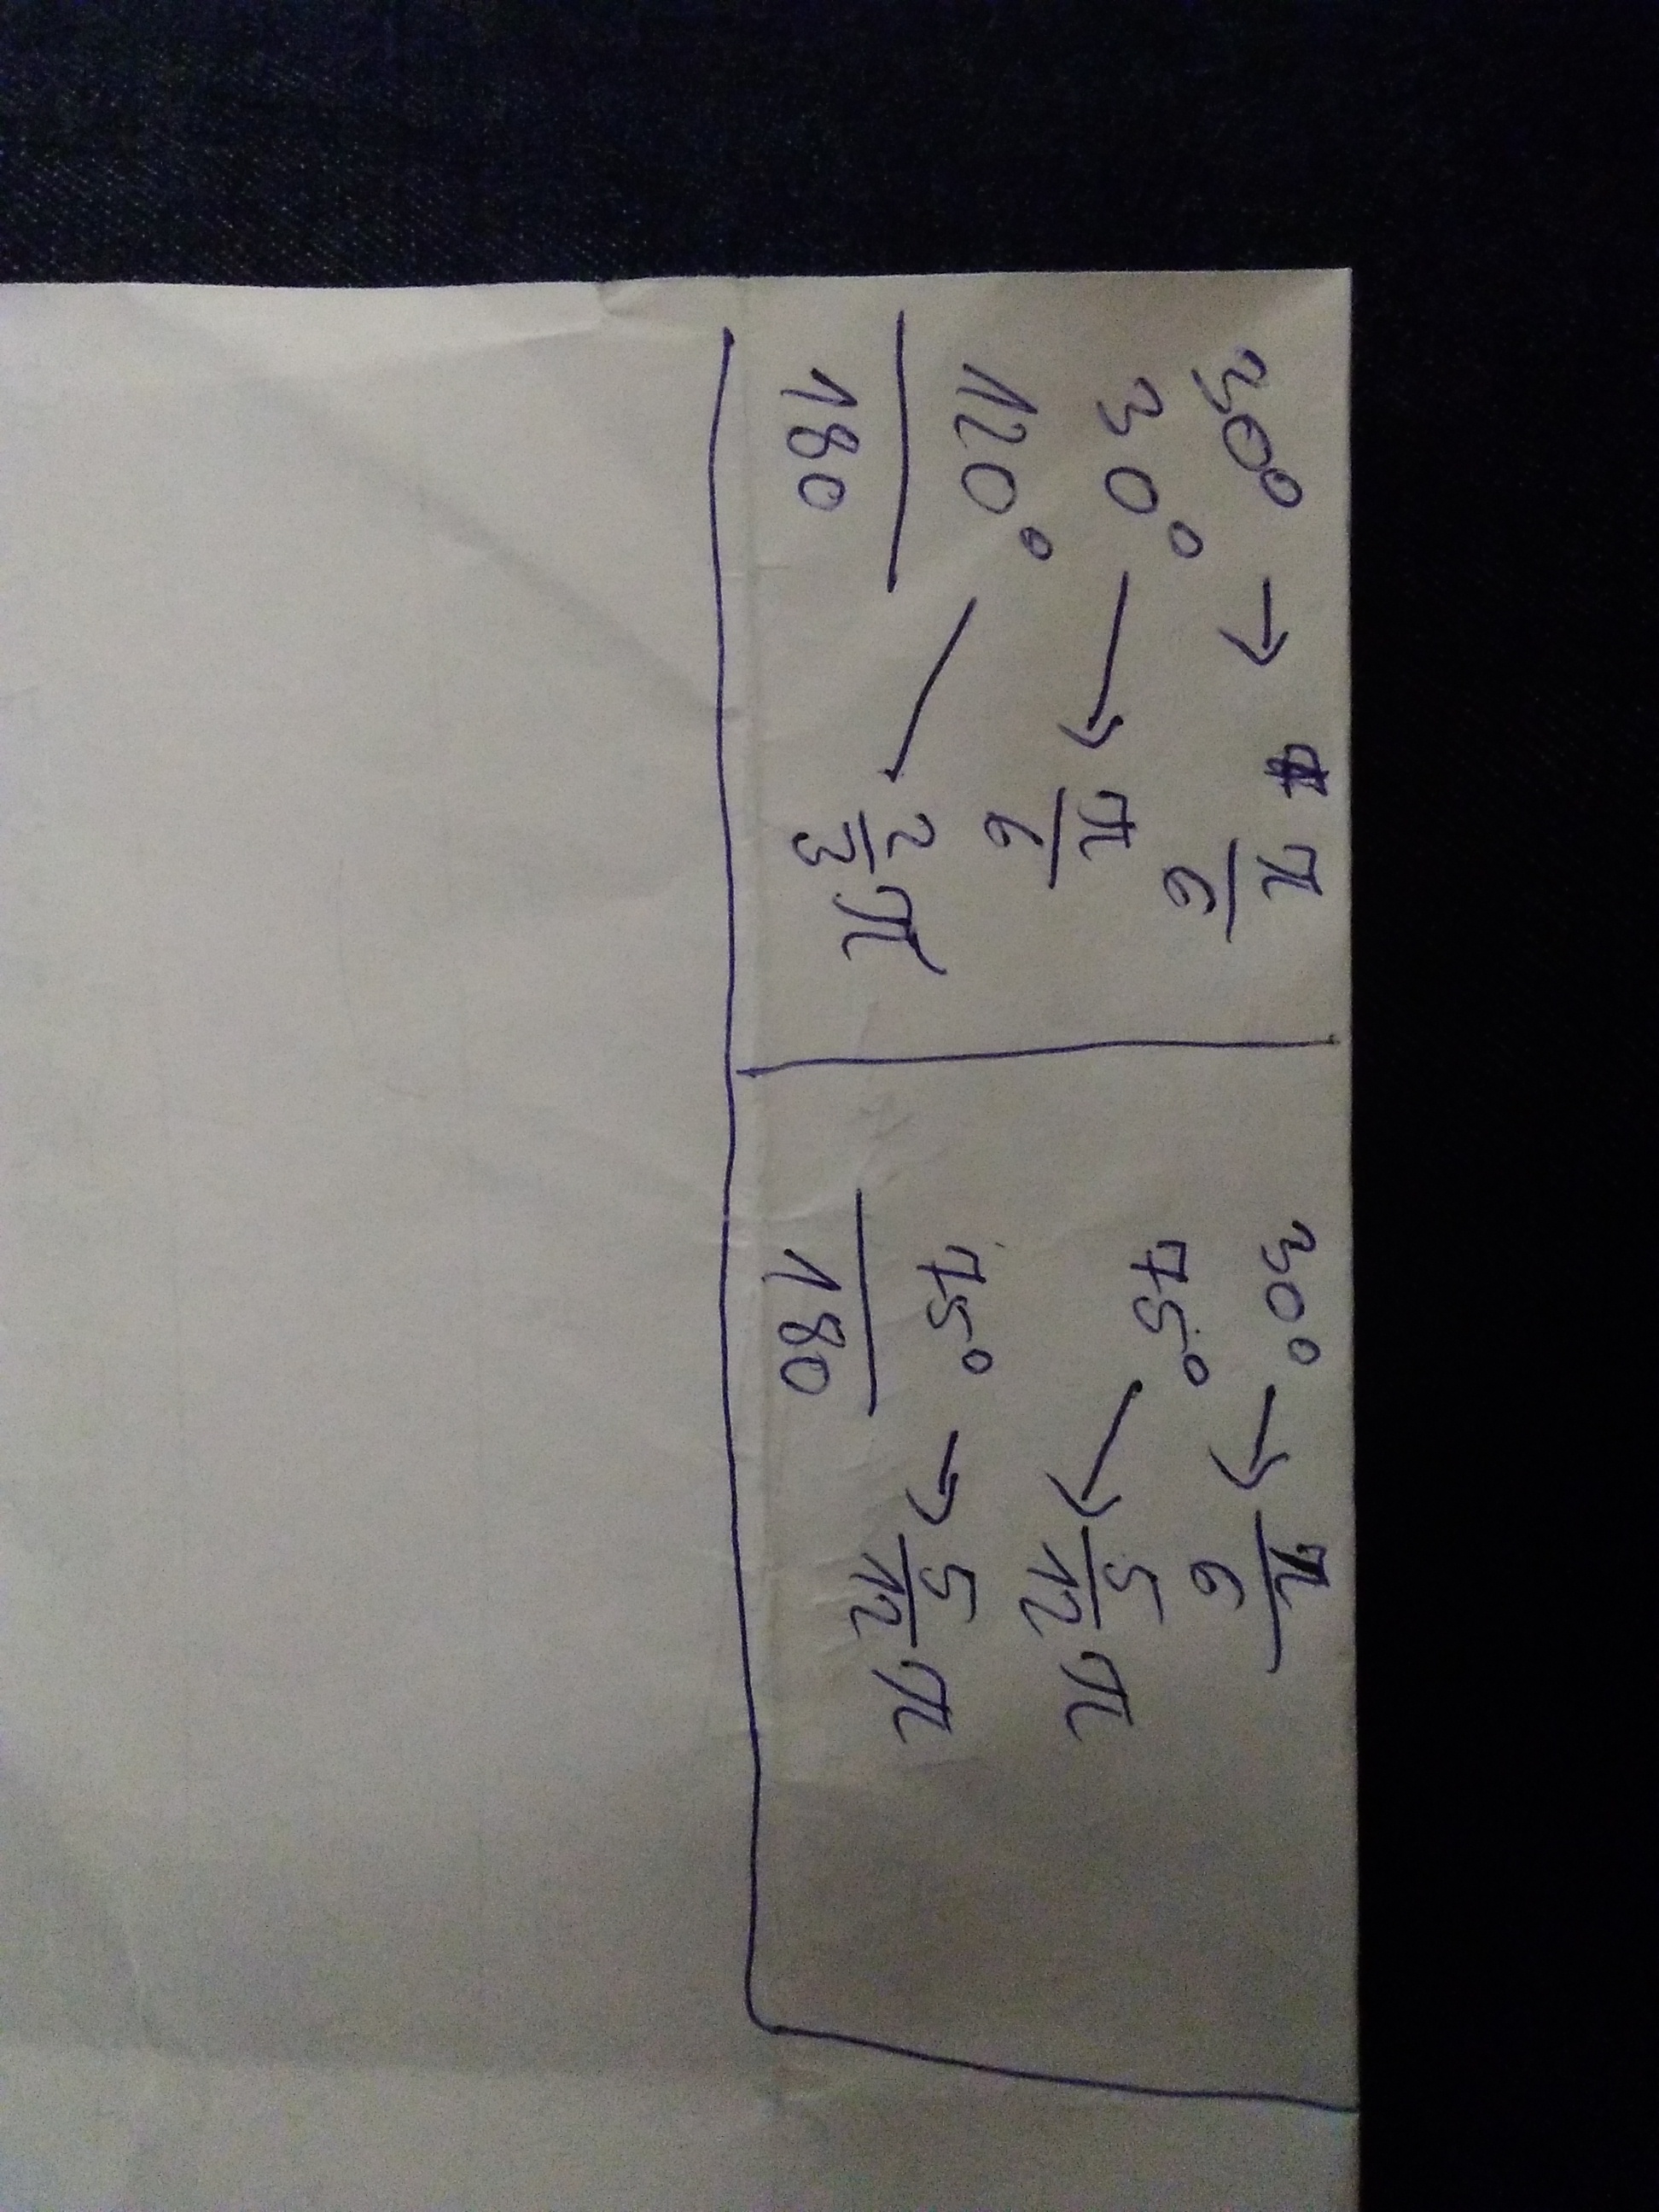 30° → π/6
30° → π/6
120° → 2/3 π
180
30° → π/6
75° → 5/12 π
75° → 5/12 π
180